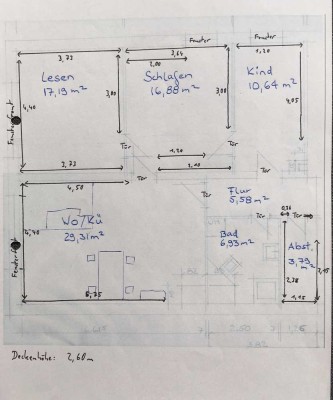 Fenster
Fenster
3,73
3,64
1,20
2,00
Lesen
17,19 m²
Schlafen
16,88 m²
Kind
10,64 m²
4,40
3,00
3,00
4,05
Fensterfront
1,20
Tür
Tür
2,73
2,10
Tür
Tür
4,50
Flur
5,58 m²
Wo/Kü
29,31 m²
Tür
Tür
Bad
6,93 m²
Abst.
3,79 m²
Fensterfront
2,38
6,75
1,45
Deckenhöhe: 2,60 m